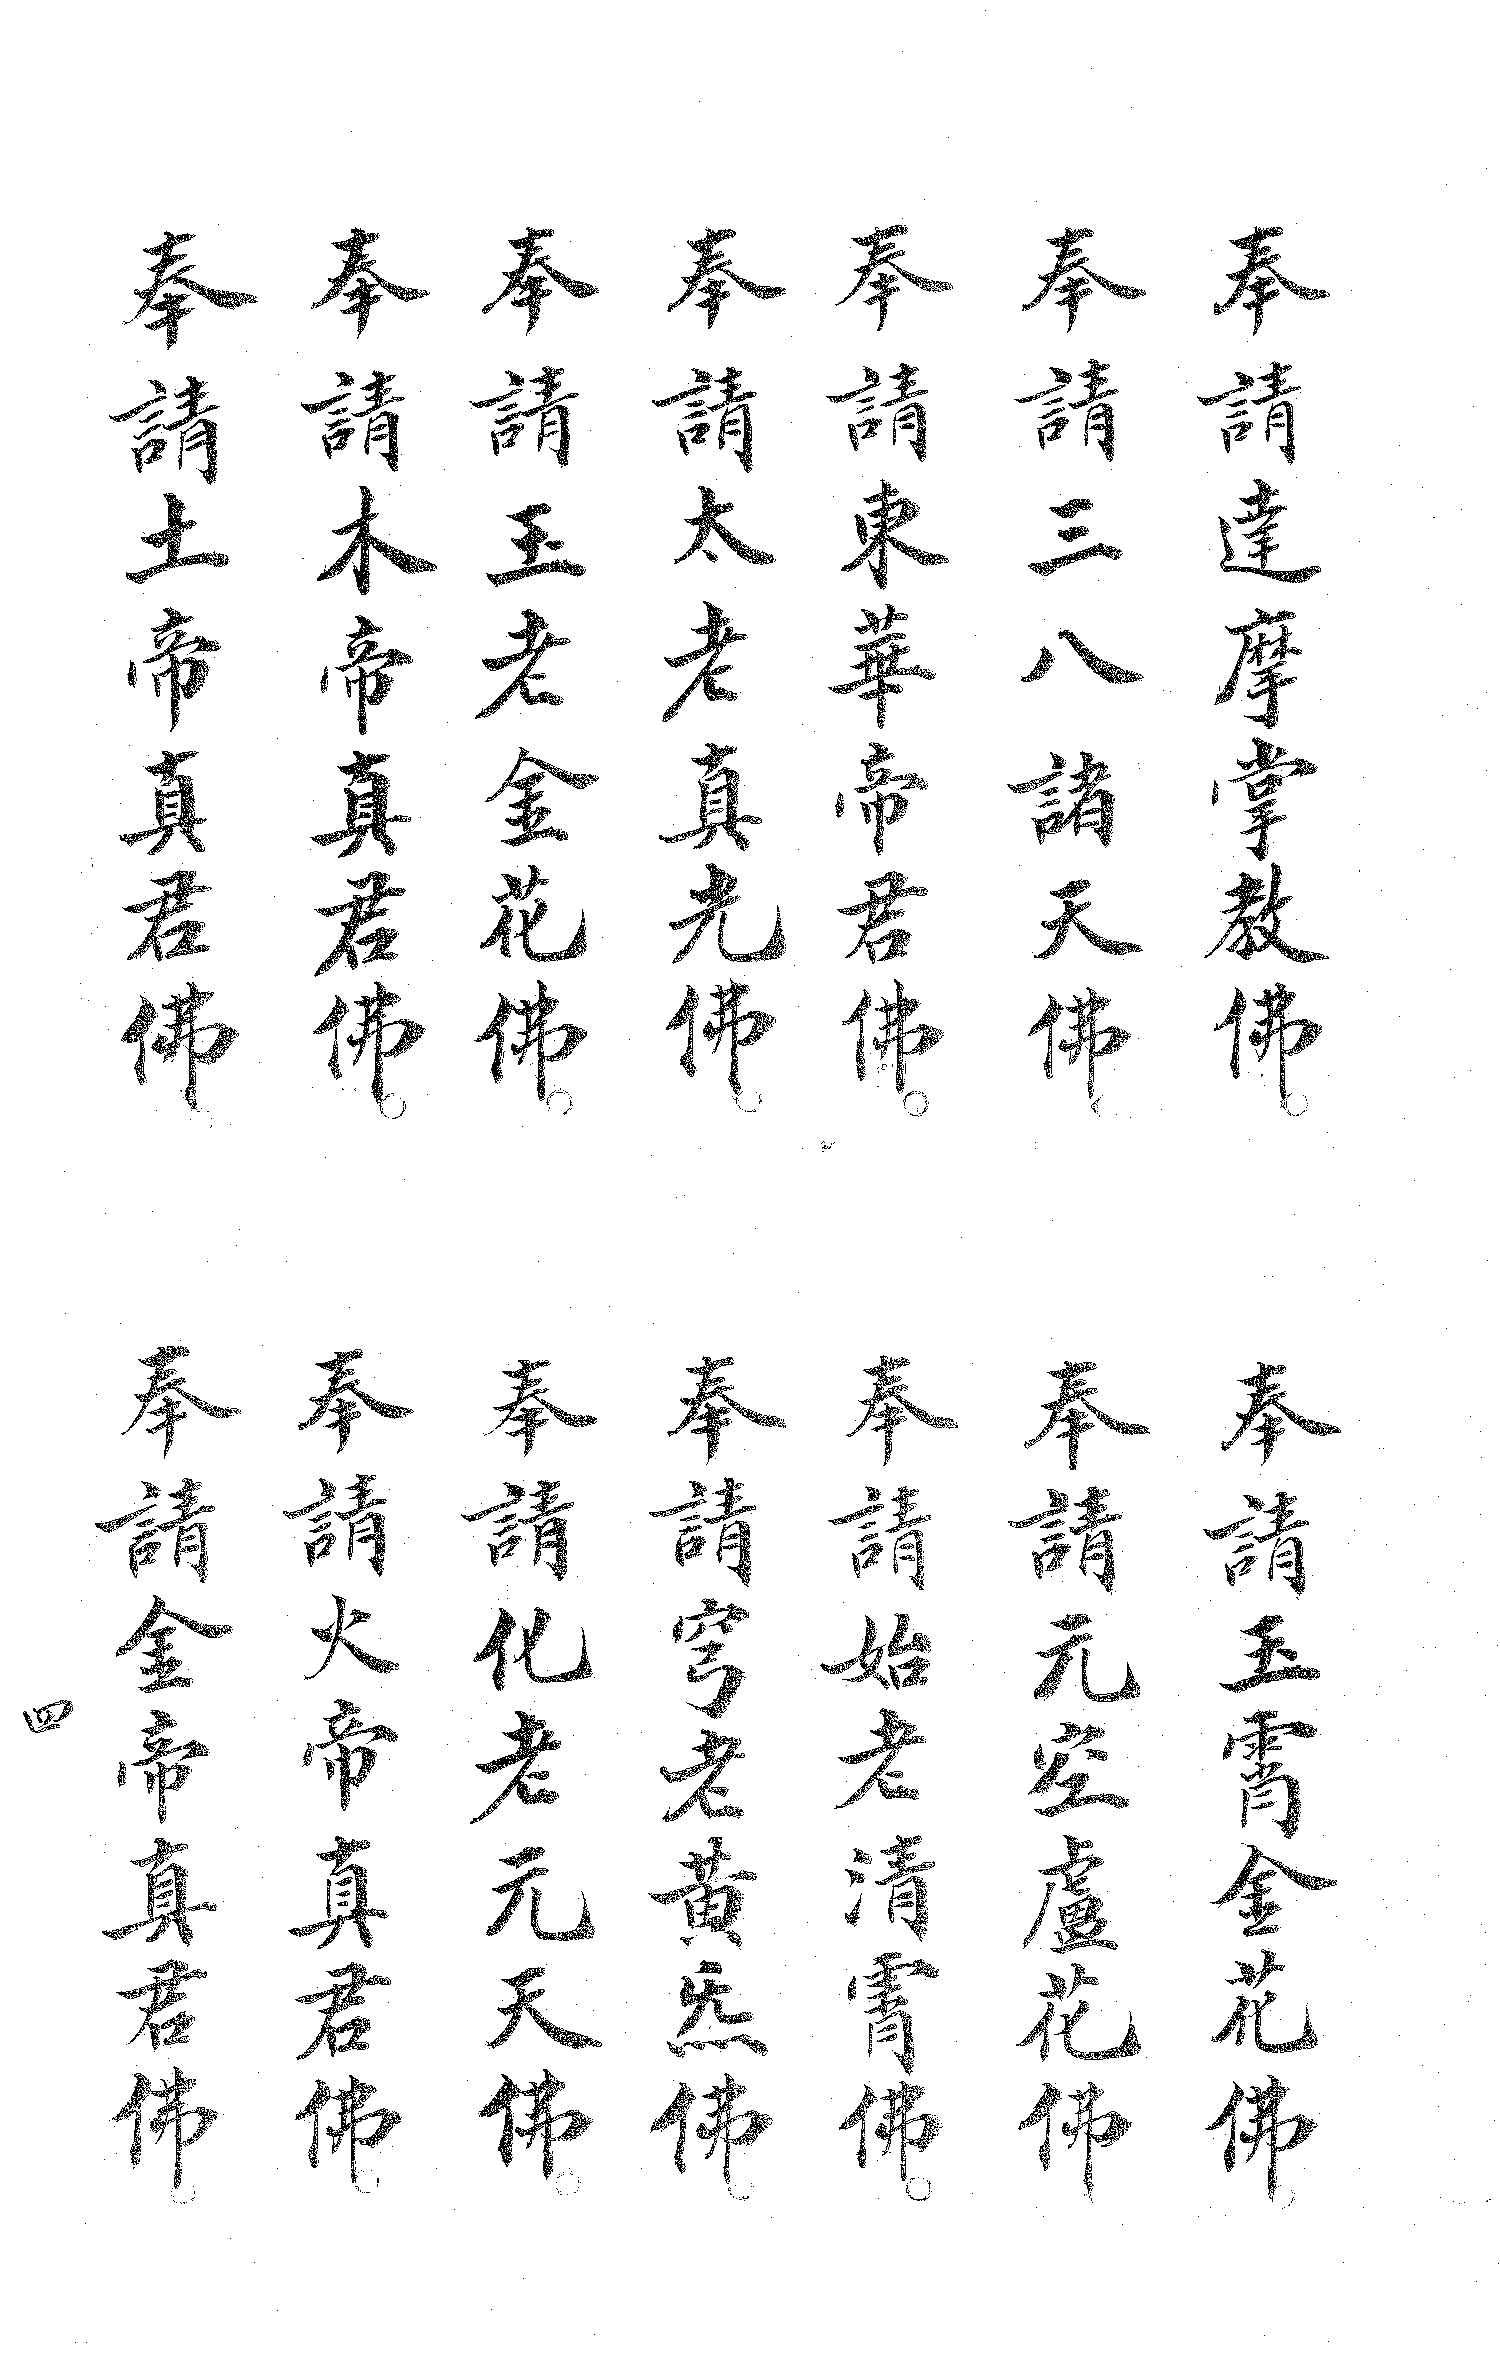 奉請達摩掌教佛。
奉請玉霄金花佛。
奉請三八諸天佛。
奉請元空盧花佛
奉請東華帝君佛。
奉請始老清霄佛。
奉請太老真光佛。
奉請穹老黃炁佛。
奉請玉老金花佛。
奉請化老元天佛。
奉請木帝真君佛。
奉請火帝真君佛。
奉請土帝真君佛。
奉請金帝真君佛。
四